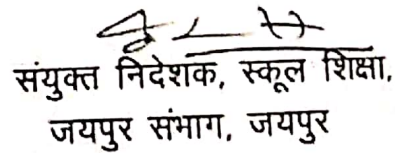 संयुक्त निदेशक, स्कूल शिक्षा,
जयपुर संभाग, जयपुर